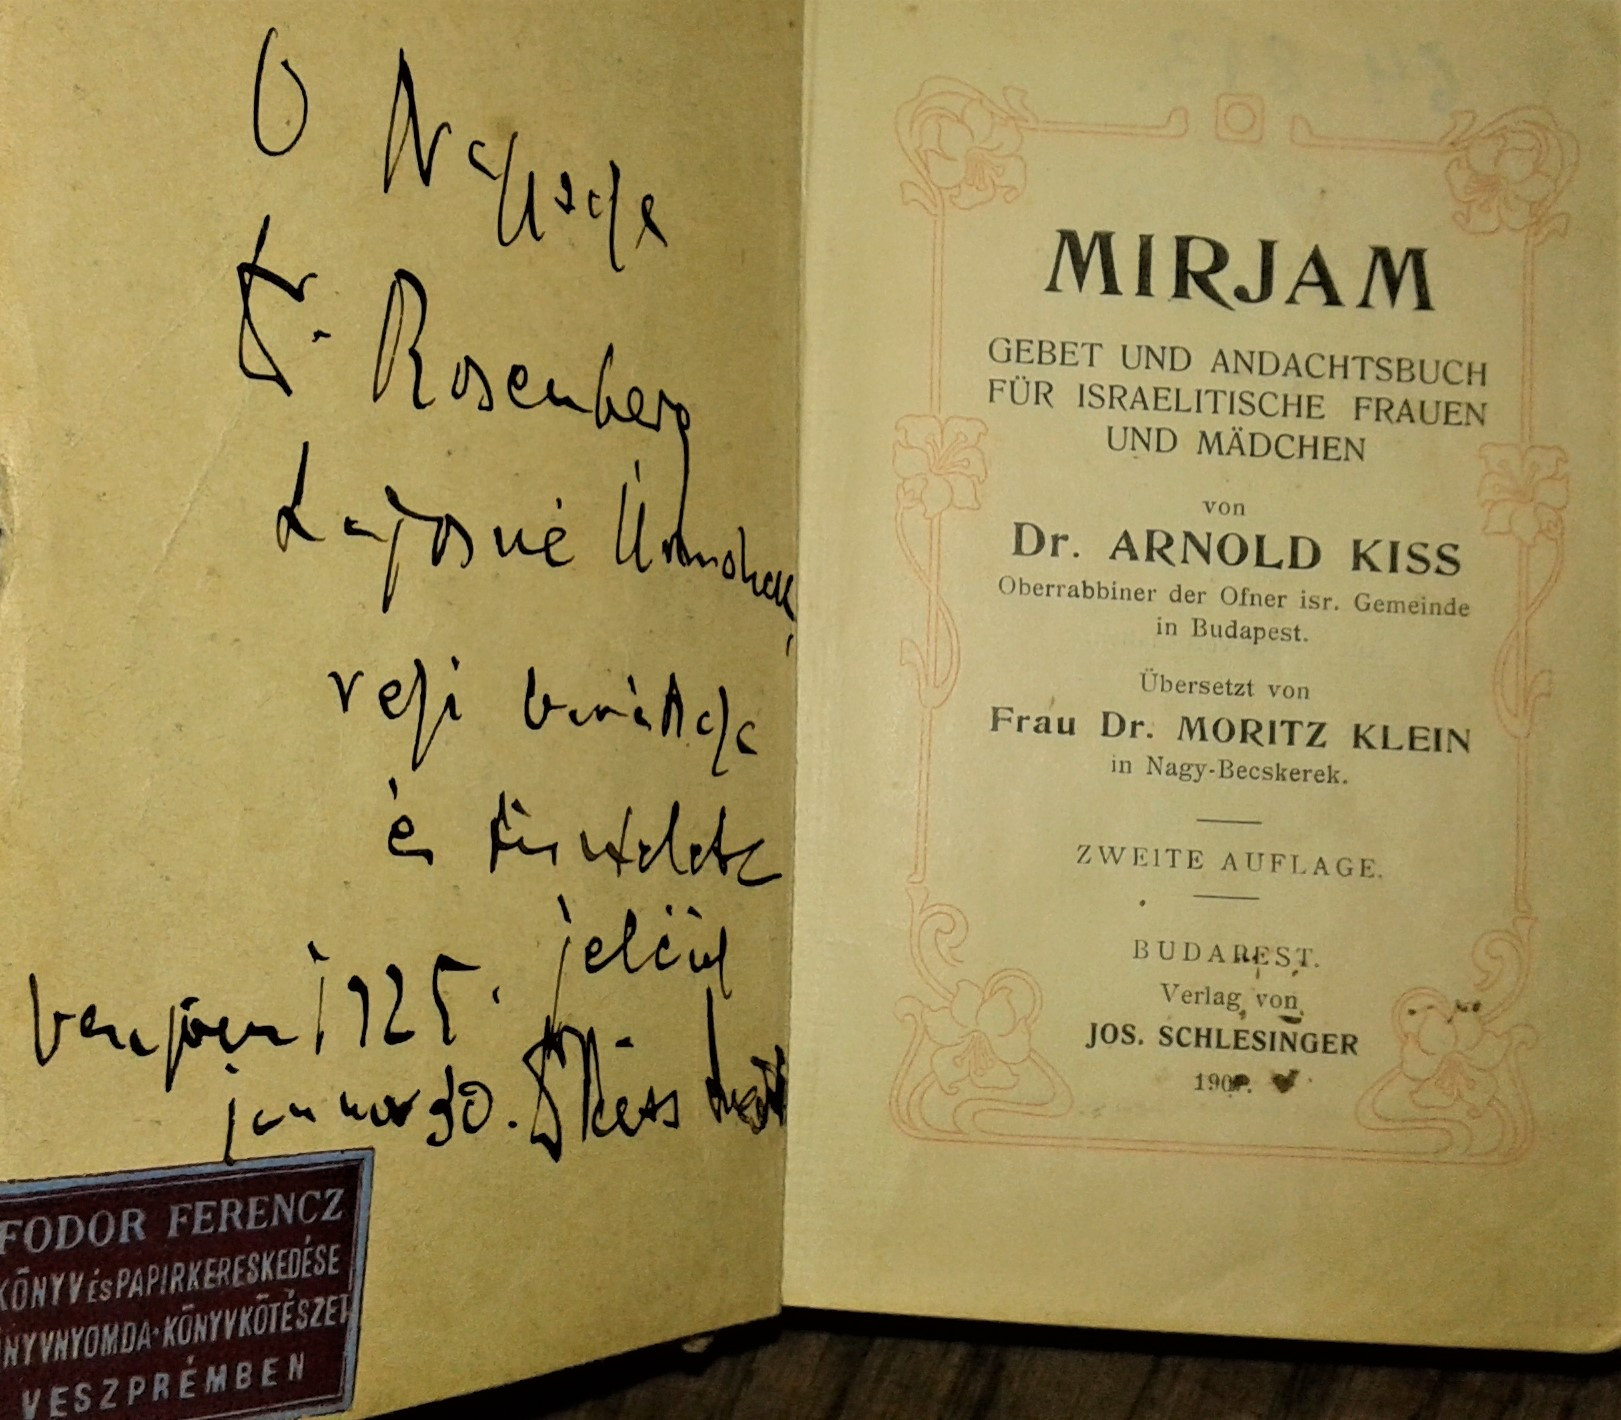 Ő Nagysága
Dr. Rosenberg
Lajosné Úrnőnek,
régi barátsága
és tisztelete
jeléül
Veszprém 1925.
január 30. Dr Kiss
FODOR FERENCZ
KÖNYV és PAPIRKERESKEDÉSE
KÖNYVNYOMDA · KÖNYVKÖTÉSZET
VESZPRÉMBEN
MIRJAM
GEBET UND ANDACHTSBUCH
FÜR ISRAELITISCHE FRAUEN
UND MÄDCHEN
von
Dr. ARNOLD KISS
Oberrabbiner der Ofner isr. Gemeinde
in Budapest.
Übersetzt von
Frau Dr. MORITZ KLEIN
in Nagy-Becskerek.
ZWEITE AUFLAGE.
BUDAPEST.
Verlag von
JOS. SCHLESINGER